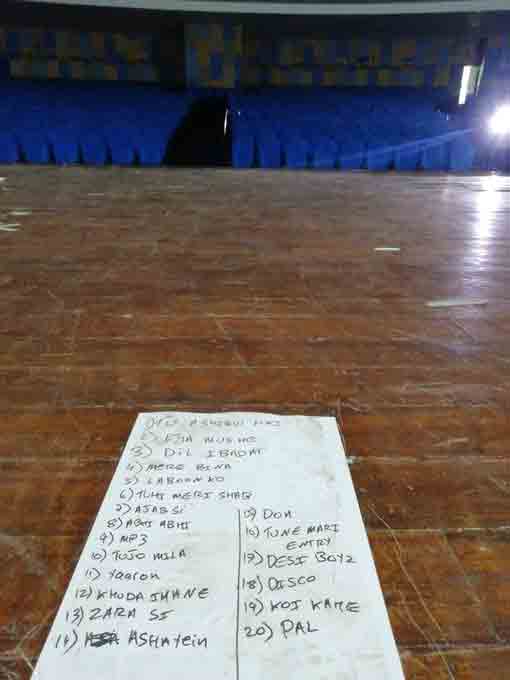 ASHIQUI HAI
2)
3) DIL IBADAT
4) MERE BINA
5) LABAON KO
6) TUHI MERI SHAB
7) AJAB SI
8) ABHI ABHI
9) MP3
10) TUJO MILA
11) Yaaron
12) KHUDA JAANE
13) ZARA SI
14) ASHAYEIN
15) DON
16) TUNE MARI
ENTRY
17) DESI BOYZ
18) DISCO
19) KOI KAHE
20) PAL